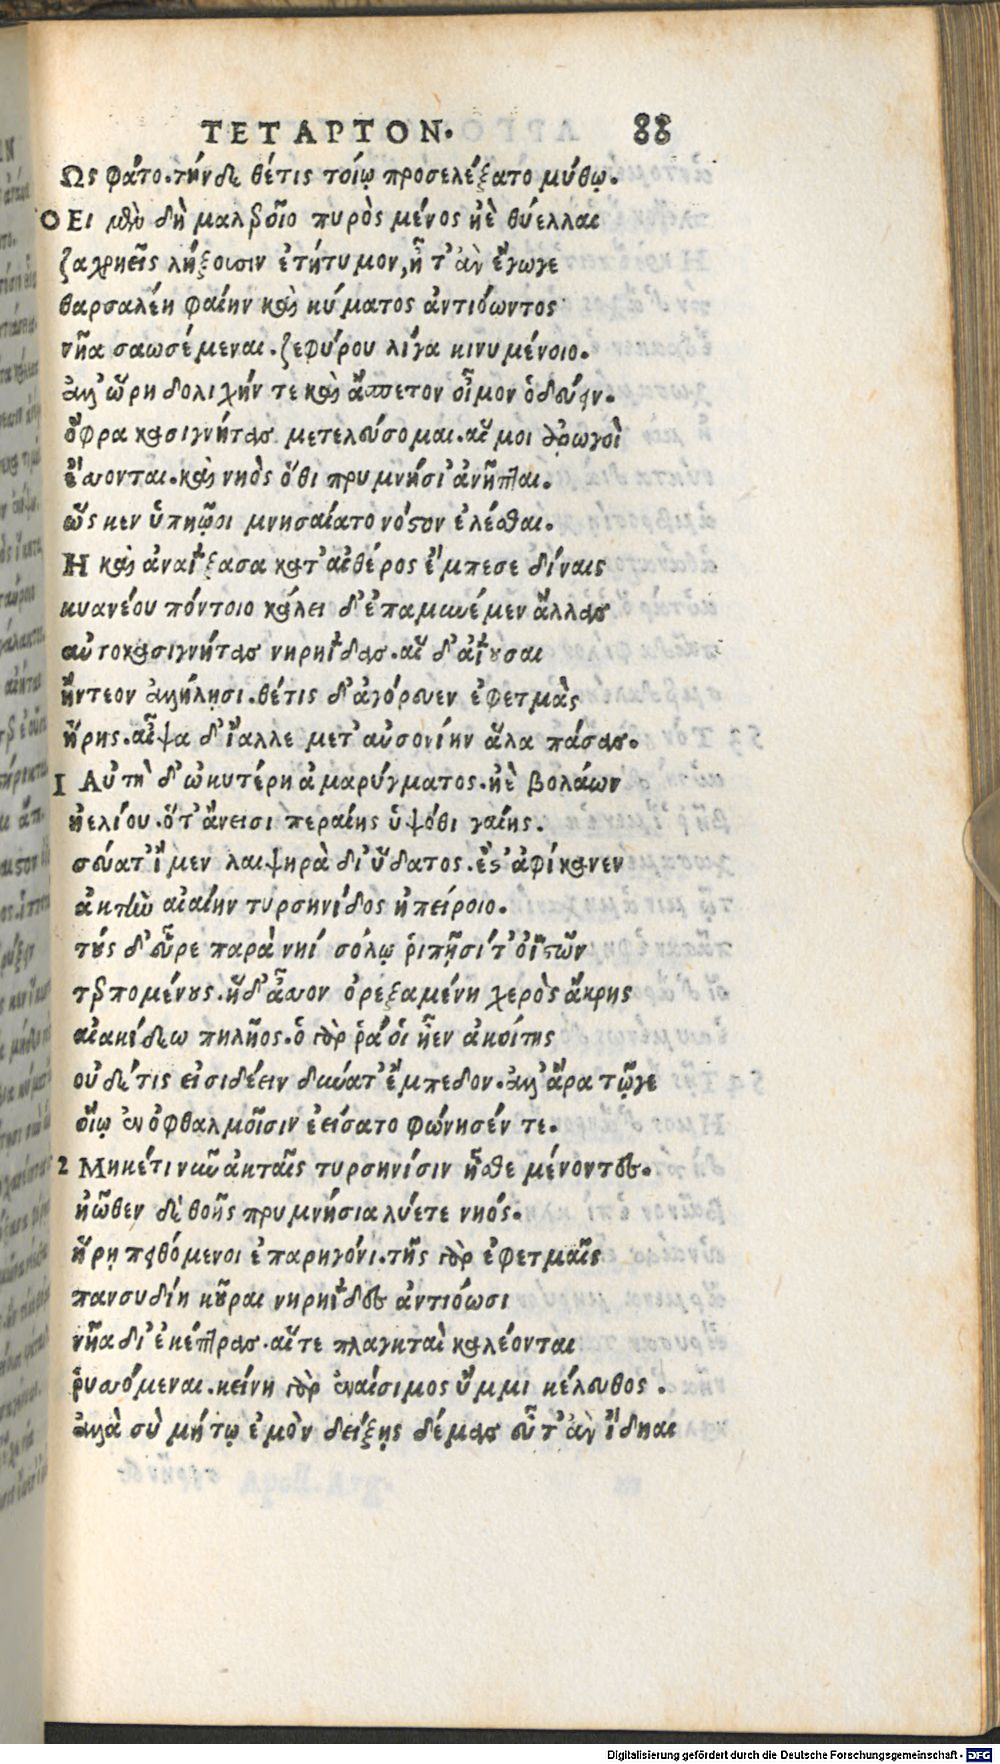 ΤΕΤΑΡΤΟΝ. 88
Ως φάτο. τήν δὲ θέτις τοίῳ προσελέξατο μύθῳ.
Ο Ει μὲν δὴ μαλεροῖο πυρὸς μένος ἠὲ θύελλαι
ζαχρηεῖς λήξουσιν ἐτήτυμον, ἦ τ' ἂν ἔγωγε
θαρσαλέη φαίην καὶ κύματος ἀντιόωντος
νῆα σαωσέμεναι. ζεφύρου λίγα κινυμένοιο.
ἀλλ' ὥρη δολιχήν τε καὶ ἄσπετον οἶμον ὁδεύειν.
ὄφρα κασιγνήτας μετελεύσομαι. αἵ μοι ἀρωγοὶ
ἔσσονται. καὶ νηὸς ὅθι πρυμνήσι' ἀνῆπται.
ὥς κεν ὑπηῷοι μνησαίατο νόστον ἑλέσθαι.
Η καὶ ἀναΐξασα κατ' αἰθέρος ἔμπεσε δίναις
κυανέου πόντοιο κάλει δ' ἐπαμυνέμεν ἄλλας
αὐτοκασιγνήτας νηρηΐδας. αἵ δ' ἀΐουσαι
ἤντεον ἀλλήλησι. θέτις δ' ἀγόρευεν ἐφετμὰς
ἥρης. αἶψα δ' ἴαλλε μετ' αὐσονίην ἅλα πάσας.
1 Αὐτὴ δ' ὠκυτέρη ἀμαρύγματος. ἠὲ βολάων
ἠελίου. ὅτ' ἄνεισι περαίης ὑψόθι γαίης.
σεύατ' ἴμεν λαιψηρὰ δι' ὕδατος. ἔς τ' ἀφίκανεν
ἀκτὴν αἰαίην τυρσηνίδος ἠπείροιο.
τοὺς δ' εὗρε παρὰ νηί σόλῳ ῥιπῇσί τ' ὀϊστῶν
τερπομένους. ἥ δ' ἆσσον ὀρεξαμένη χερὸς ἄκρης
αἰακίδεω πηλῆος. ὁ γάρ ῥά οἱ ἦεν ἀκοίτης
οὐδέ τις εἰσιδέειν δύνατ' ἔμπεδον. ἀλλ' ἄρα τῷγε
οἴῳ ἐν ὀφθαλμοῖσιν ἐείσατο φώνησέν τε.
2 Μηκέτι νῦν ἀκταῖς τυρσηνίσιν ἧσθε μένοντες.
ἠῶθεν δὲ θοῆς πρυμνήσια λύετε νηός.
ἥρῃ πειθόμενοι ἐπαρηγόνι. τῆς γὰρ ἐφετμαῖς
πανσυδίη κοῦραι νηρηΐδες ἀντιόωσι
νῆα δι' ἐκ πέτρας. αἵτε πλαγκταὶ καλέονται
ῥυσσόμεναι. κείνη γὰρ ἐναίσιμος ὔμμι κέλευθος.
ἀλλὰ σὺ μή τῳ ἐμὸν δείξῃς δέμας εὖτ' ἂν ἴδηαι
Digitalisierung gefördert durch die Deutsche Forschungsgemeinschaft - DFG